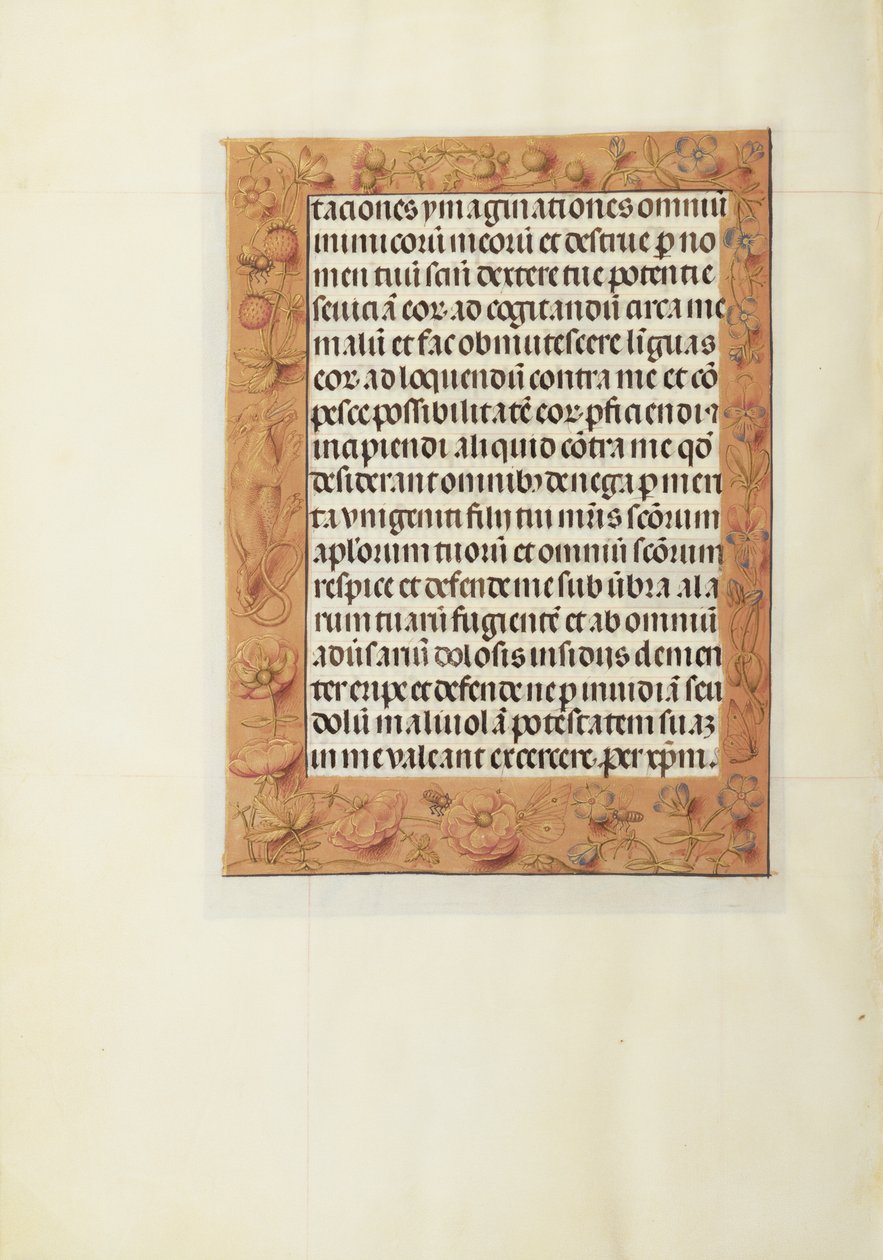 taciones ymaginationes omniū
inimicorū meorū et destrue ꝑ no
men tuū scm̄ dextere tue potentie
seuiciā eoꝝ ad cogitandū circa me
malū et fac obmutescere linguas
eoꝝ ad loquendū contra me et cō
pesce possibilitatē eoꝝ ꝑficiendi ⁊
incipiendi aliquid cōtra me qd̄
desiderant omnibꝫ denega ꝑ meri
ta vnigeniti filij tui mr̄is scōrum
apl'orum tuorū et omniū scōrum
respice et defende me sub ūbra ala
rum tuarū fugientē et ab omniū
adūsariū dolosis insidijs clemen
ter eripe et defende ne ꝑ inuidiā seu
dolū maliuolā potestatem suaꝫ
in me valeant excercere. per xp̄m.